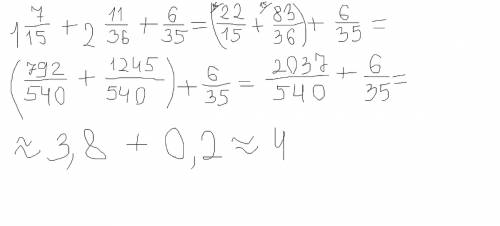 1 7/15 + 2 11/36 + 6/35 = (22/15 + 83/36) + 6/35 =
(792/540 + 1245/540) + 6/35 = 2037/540 + 6/35 =
≈ 3,8 + 0,2 ≈ 4